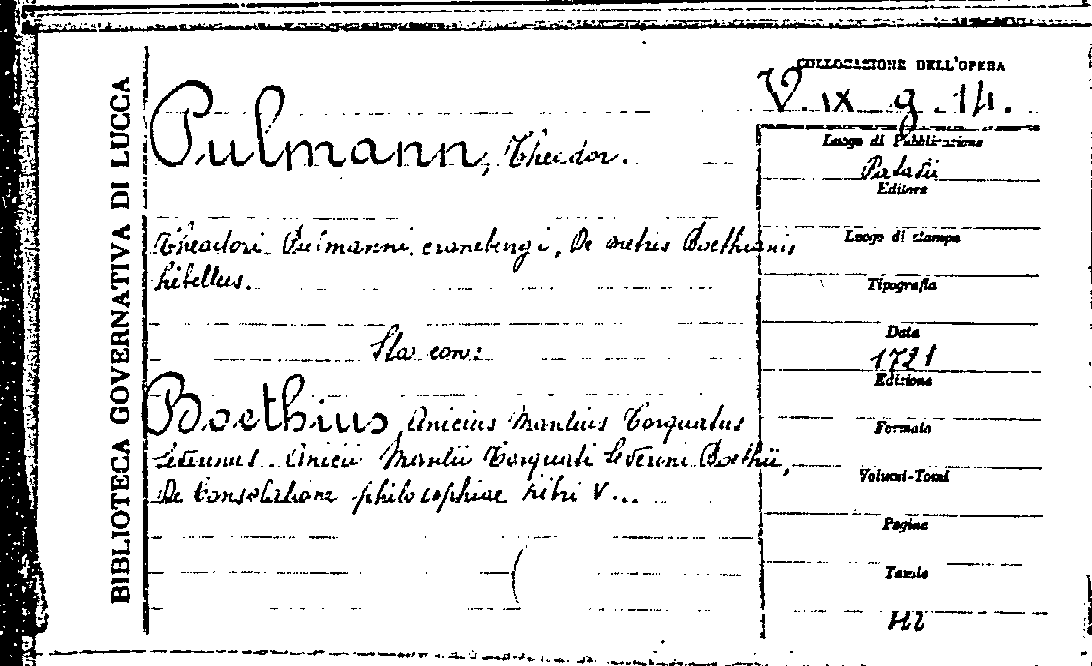 BIBLIOTECA GOVERNATIVA DI LUCCA
COLLOCAZIONE DELL'OPERA
V. ix g. 14.
Pulmann, Theodor.
Theodori Pulmanni cranebergi, De metris Boethianis
libellus.
Sta con:
Boethius Anicius Manlius Torquatus
Severinus. Anicii Manlii Torquati Severini Boethii,
De Consolatione philosophiae libri V...
Luogo di Pubblicazione
Patavii
Editore
Luogo di stampa
Tipografia
Data
1721
Edizione
Formato
Volumi-Tomi
Pagine
Tavole